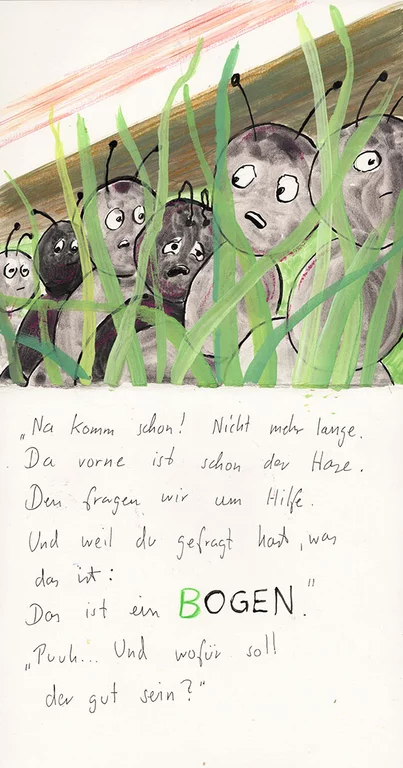 „Na komm schon! Nicht mehr lange.
Da vorne ist schon der Hase.
Den fragen wir um Hilfe.
Und weil du gefragt hast, was
das ist:
Das ist ein BOGEN."
„Puuh... Und wofür soll
der gut sein?"